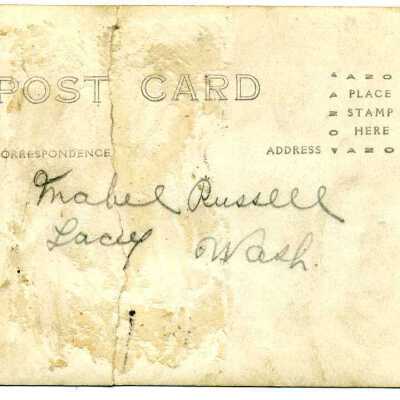 POST CARD
AZO
PLACE
STAMP
HERE
AZO
AZO
AZO
CORRESPONDENCE
ADDRESS
Mabel Russell
Lacey Wash.